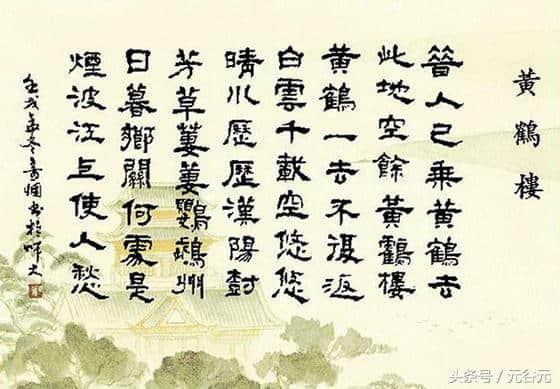 黃鶴樓
昔人已乘黃鶴去
此地空餘黃鶴樓
黃鶴一去不復返
白雲千載空悠悠
晴川歷歷漢陽樹
芳草萋萋鸚鵡洲
日暮鄉關何處是
煙波江上使人愁
壬戌年冬書於師大
头条号 / 元谷元